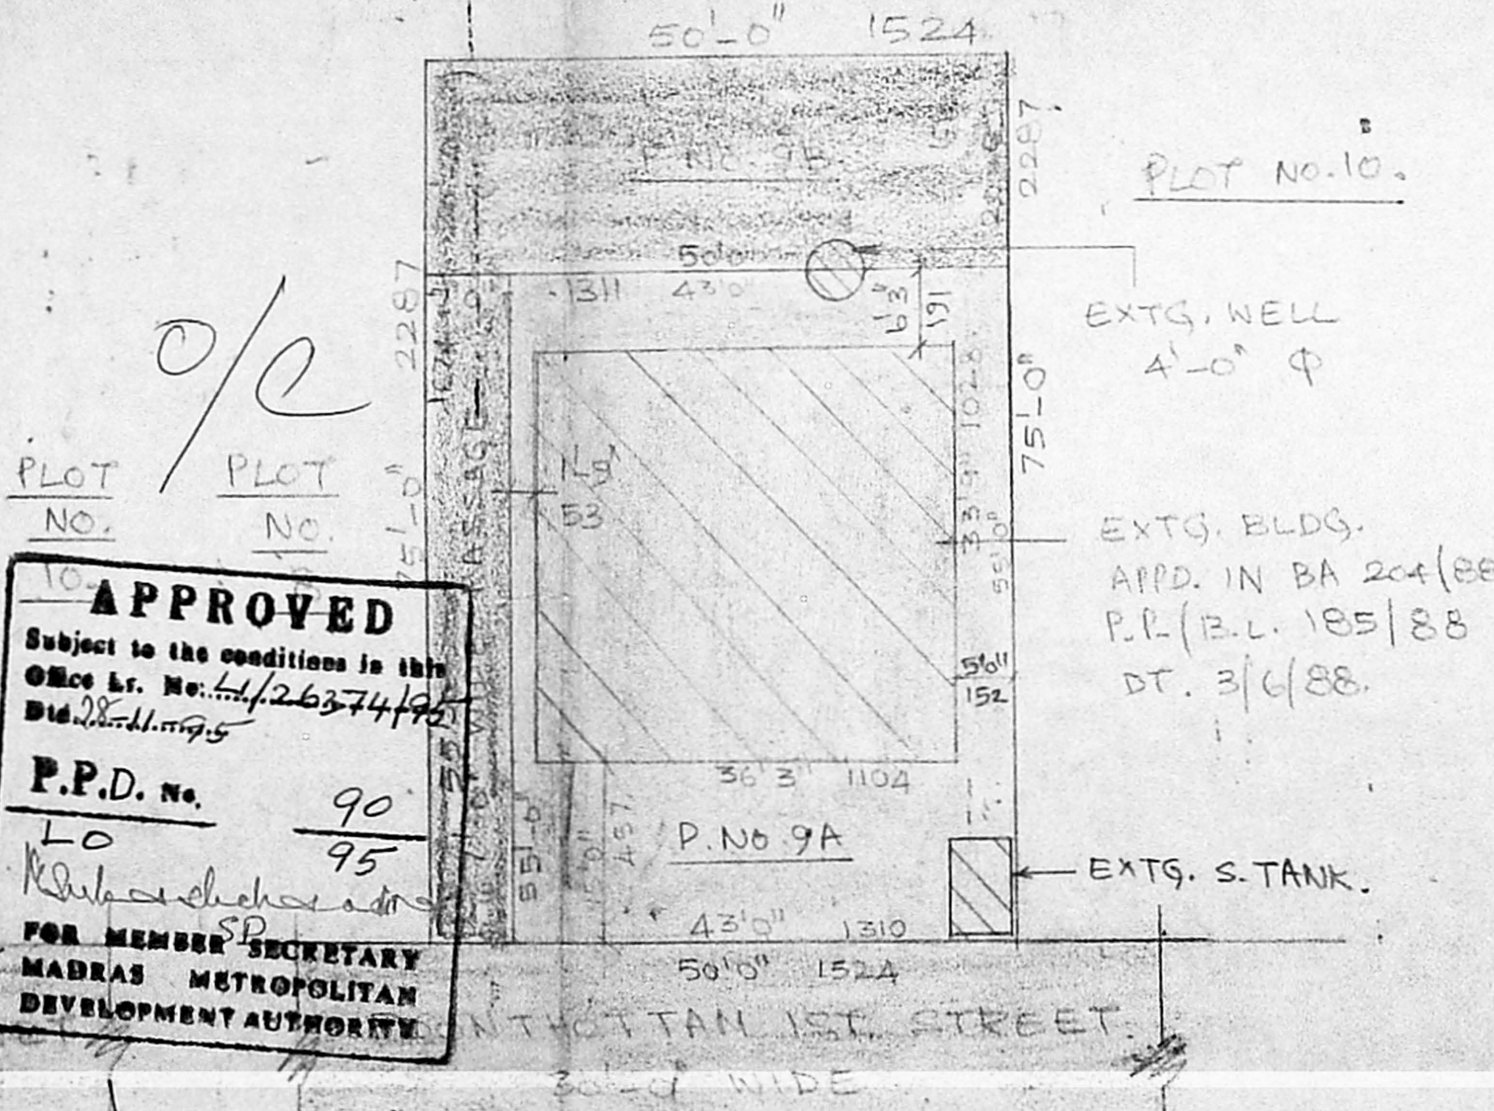 50'-0" 1524
P.NO. 9B.
2287
PLOT NO.10.
50'0"
1311 43'0"
6'3"
191
EXTG. WELL
4'-0" Φ
2287
O/C
75'-0"
75'-0"
PLOT
NO.
10
PLOT
NO.
PASSAGE
1'-9"
53
33'9" 1028
55'0"
EXTG. BLDG.
APPD. IN BA 204/88
P.P./B.L. 185/88
DT. 3/6/88.
5'0"
152
36'3" 1104
P.NO.9A
55'-0"
457
EXTG. S.TANK.
43'0" 1310
50'0" 1524
THOTTAM 1ST. STREET.
30'-0" WIDE
APPROVED
Subject to the conditions in this
Office Lr. No: L1/26374/95
Dtd. 28-11-95
P.P.D. No. 90
LO 95
SP
FOR MEMBER SECRETARY
MADRAS METROPOLITAN
DEVELOPMENT AUTHORITY